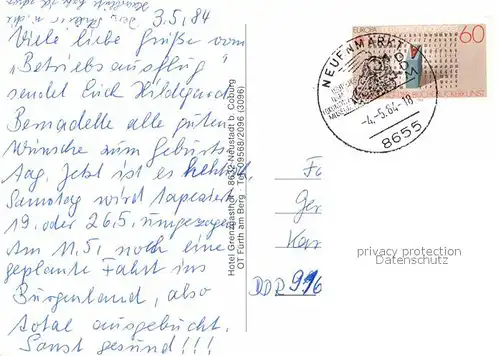 3.5.84
Viele liebe Grüße vom
"Betriebsausflug"
sendet Euch Hildegard
Bernadette alle guten
Wünsche zum Geburts-
tag. Jetzt ist es
Samstag wird tapeziert
19. oder 26.5. umgezogen
Am 11.5. noch eine
geplante Fahrt ins
Burgenland, also
total ausgebucht.
Sonst gesund!!!
Hotel Grenzgasthof · 8632 Neustadt b. Coburg
OT Fürth am Berg · Tel. 09568/2096 (3096)
EUROPA
60
NEUENMARKT
-4.-5.84-18
8655
Fa
Ger
Kar
DDR 916
privacy protection
Datenschutz